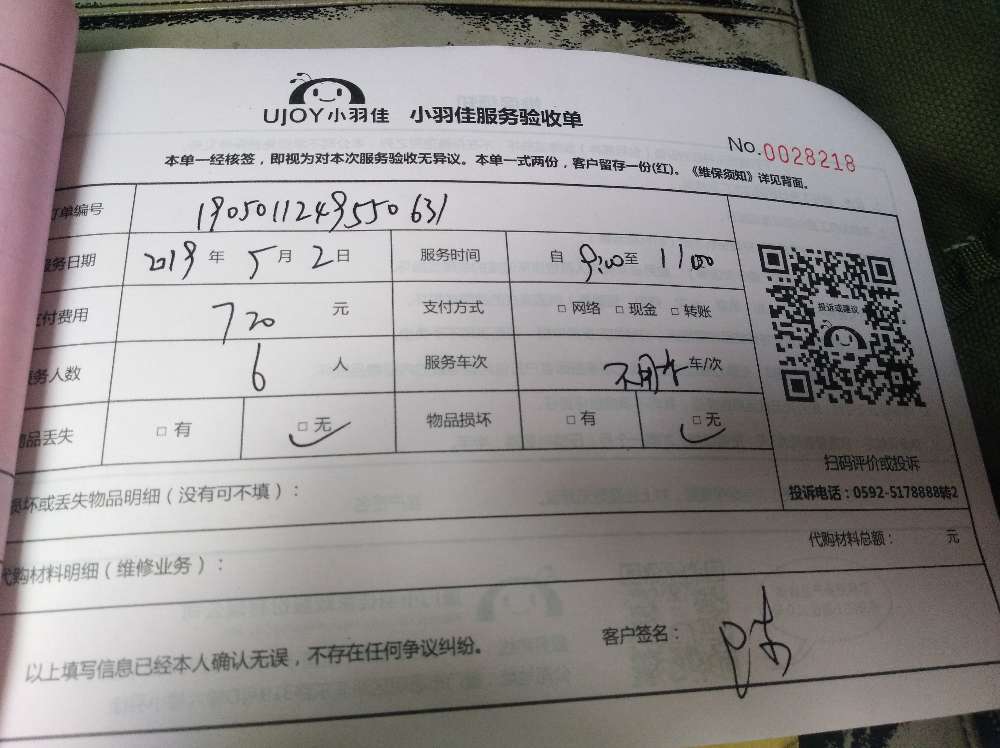 UJOY小羽佳 小羽佳服务验收单
No.0028218
本单一经核签，即视为对本次服务验收无异议。本单一式两份，客户留存一份(红)。《维保须知》详见背面。
订单编号 1905011249550631
服务日期 2019 年 5 月 2 日 服务时间 自 9:00 至 11:00
支付费用 720 元 支付方式 □ 网络 □ 现金 □ 转账
服务人数 6 人 服务车次 不用车 车/次
物品丢失 □ 有 □ 无 物品损坏 □ 有 □ 无
投诉或建议
扫码评价或投诉
投诉电话：0592-5178888转2
损坏或丢失物品明细（没有可不填）：
代购材料明细（维修业务）： 代购材料总额： 元
以上填写信息已经本人确认无误，不存在任何争议纠纷。 客户签名：